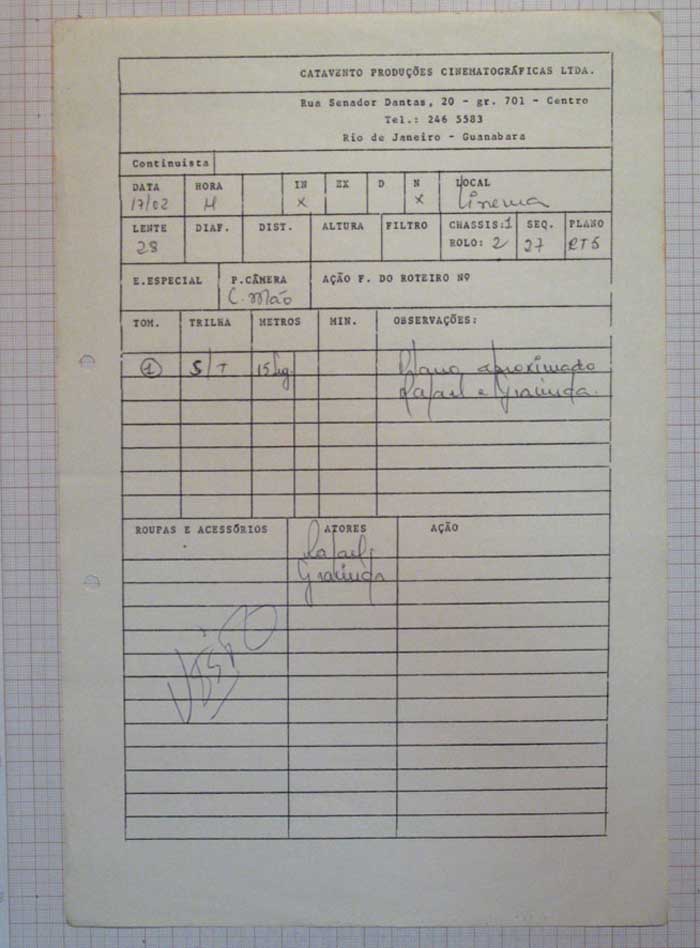 CATAVENTO PRODUÇÕES CINEMATOGRÁFICAS LTDA.
Rua Senador Dantas, 20 - gr. 701 - Centro
Tel.: 246 5583
Rio de Janeiro - Guanabara
Continuista
DATA HORA IN EX D N LOCAL
17/02 M X X Cinema
LENTE DIAF. DIST. ALTURA FILTRO CHASSIS: 1 SEQ. PLANO
28 ROLO: 2 27 RT5
E.ESPECIAL P.CÂMERA AÇÃO F. DO ROTEIRO Nº
C. Mão
TOM. TRILHA METROS MIN. OBSERVAÇÕES:
1 S/T 15 Plano aproximado
Rafael e Gracinda.
ROUPAS E ACESSÓRIOS ATORES AÇÃO
Rafael
Gracinda
VISTO